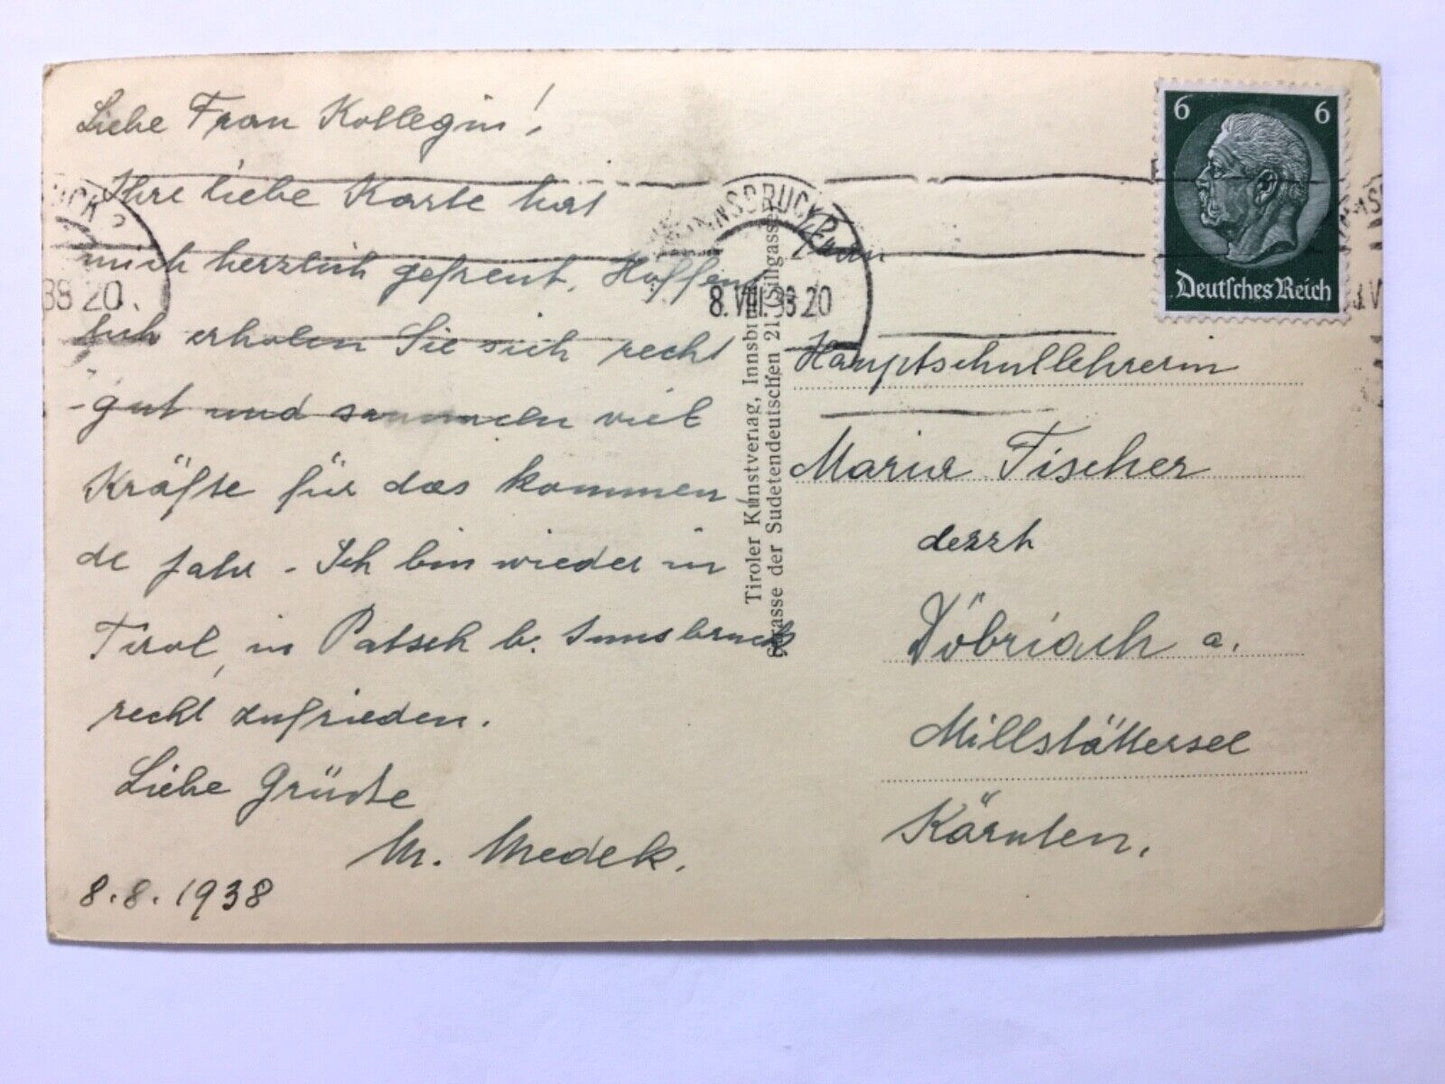 Liebe Frau Kollegin!
Ihre liebe Karte hat
mich herzlich gefreut. Hoffent
lich erholen Sie sich recht
gut und sammeln viel
Kräfte für das kommen-
de Jahr. Ich bin wieder in
Tirol, in Patsch b. Innsbruck
recht zufrieden.
Liebe Grüße
M. Medek.
8.8.1938
Tiroler Kunstverlag, Innsbruck
Strasse der Sudetendeutschen 21
INNSBRUCK 2
8.VIII.38 20
38 20
6 6
Deutsches Reich
Frau
Hauptschullehrerin
Maria Fischer
derzt
Döbriach a.
Millstättersee
Kärnten.